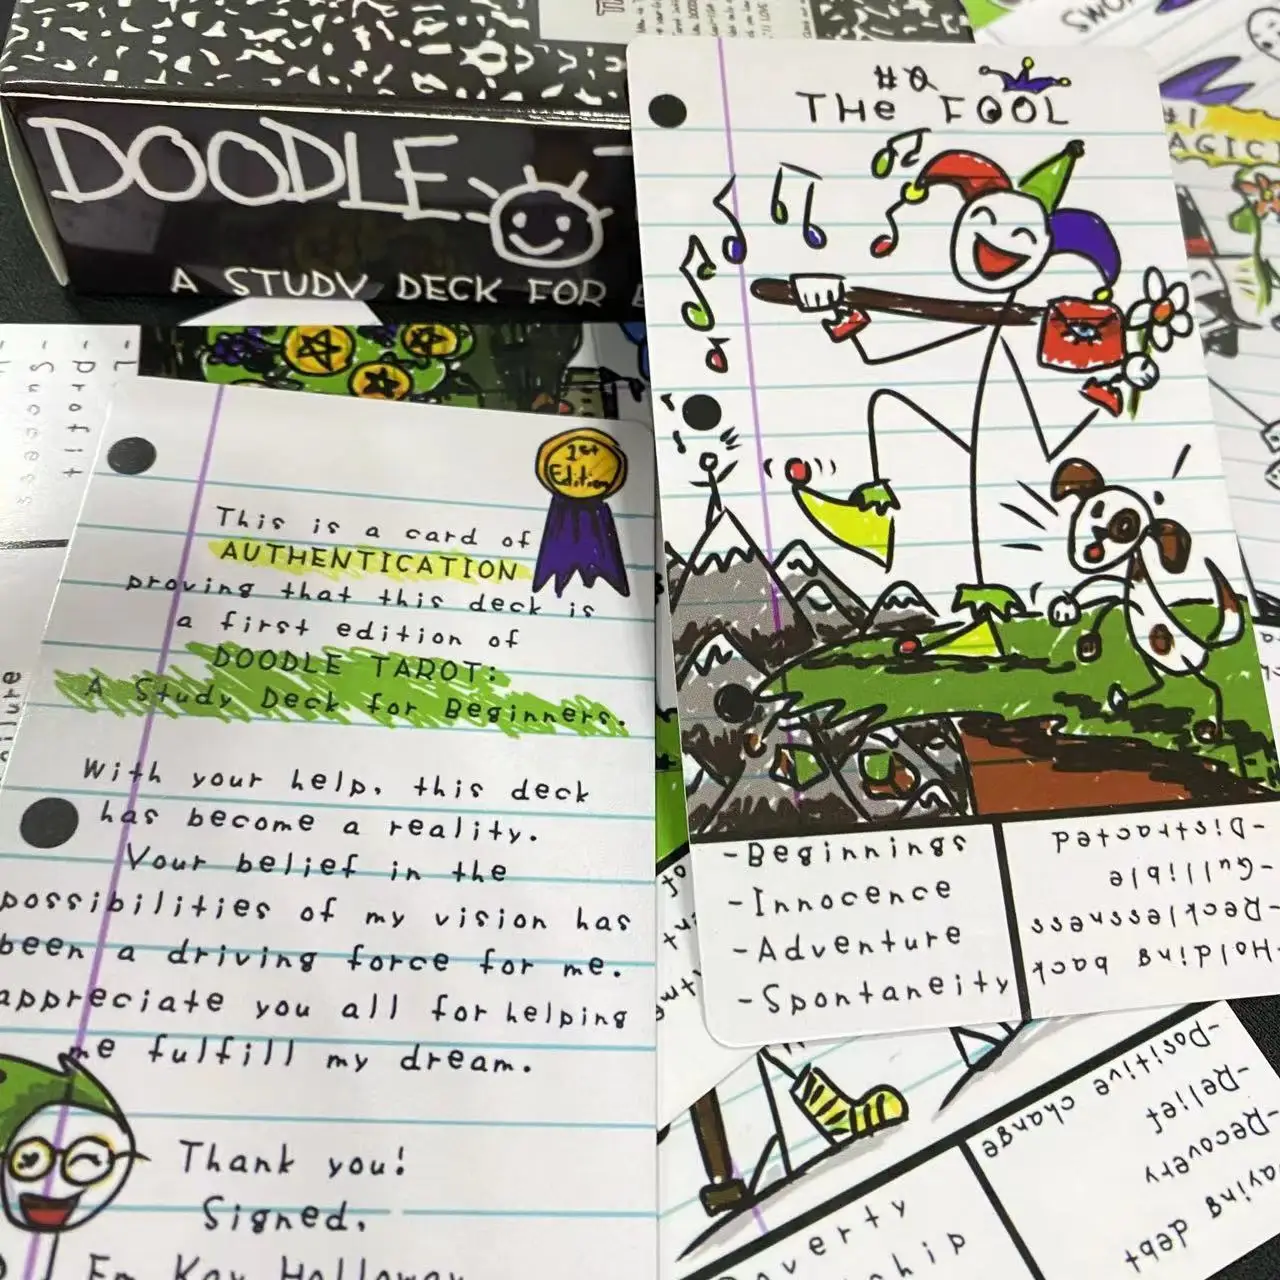 DOODLE
A STUDY DECK FOR
#0
THe FOOL
-Beginnings
-Innocence
-Adventure
-Spontaneity
-Distracted
-Gullible
-Recklessness
-Holding back
1st
Edition
This is a card of
AUTHENTICATION
proving that this deck is
a first edition of
DOODLE TAROT:
A Study Deck for Beginners.
With your help, this deck
has become a reality.
Your belief in the
possibilities of my vision has
been a driving force for me.
appreciate you all for helping
me fulfill my dream.
Thank you!
Signed,
Em Kay Holloway
#1
-Positive change
-Relief
-Recovery
debt